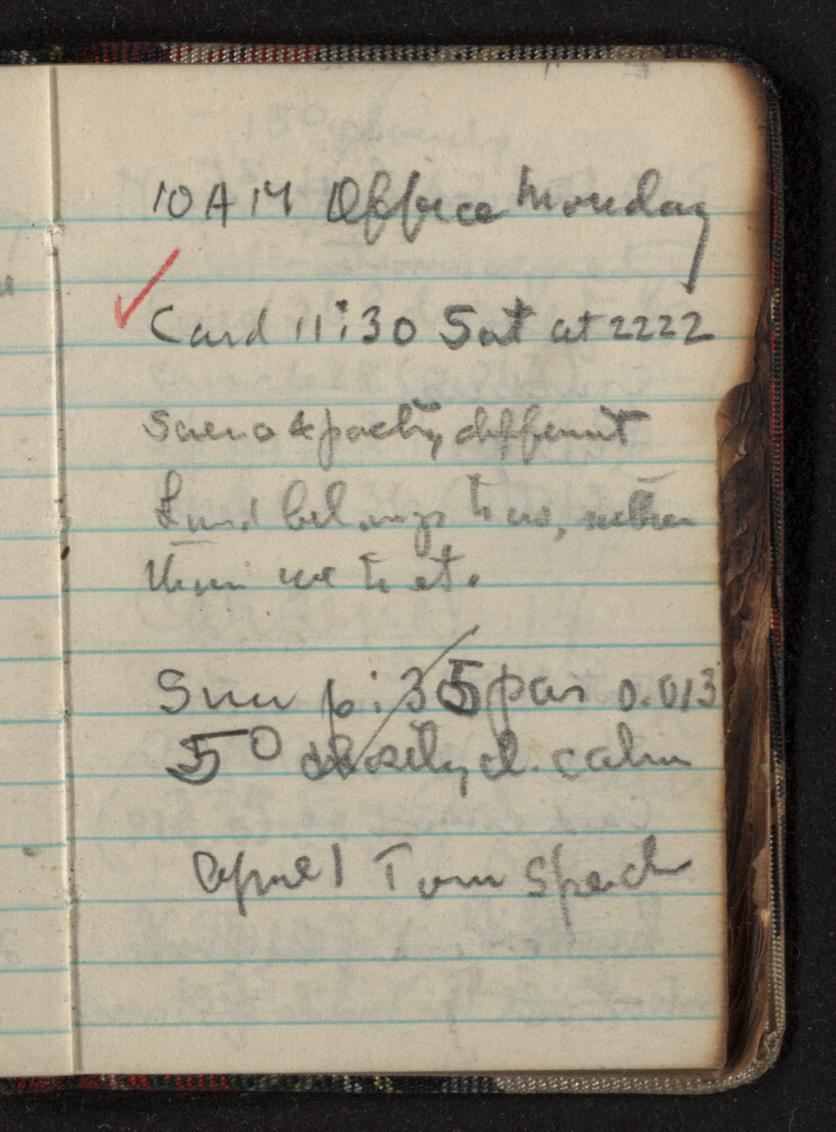 10 AM Office Monday
Card 11:30 Sat at 2222
different
Land belongs to us, rather
than we to it.
Sun p: 35 par 0.013
5° cl. calm
April 1 Tom Speech